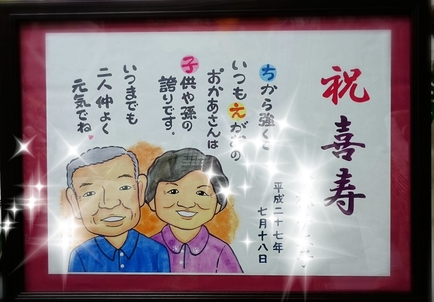 祝 喜寿
平成二十七年
七月十八日
ちから強く
いつもえがおの
おかあさんは
子供や孫の
誇りです。
いつまでも
二人仲よく
元気でね